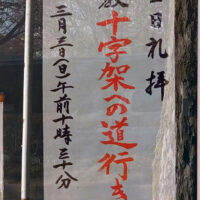 日礼拝
十字架への道行き
三月三日(日)午前十時三十分